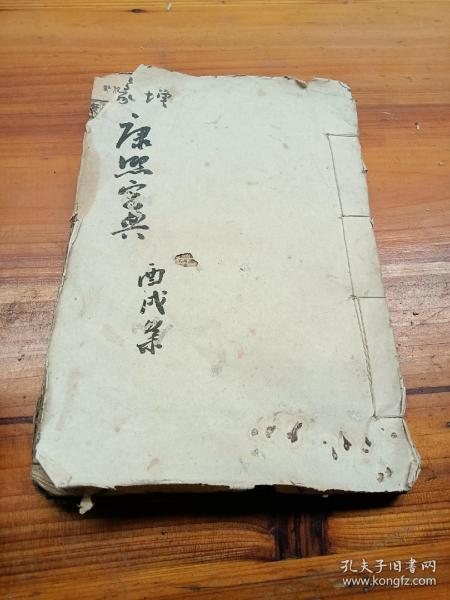 增 篆
康熙字典
酉戌集
孔夫子旧书网
www.kongfz.com